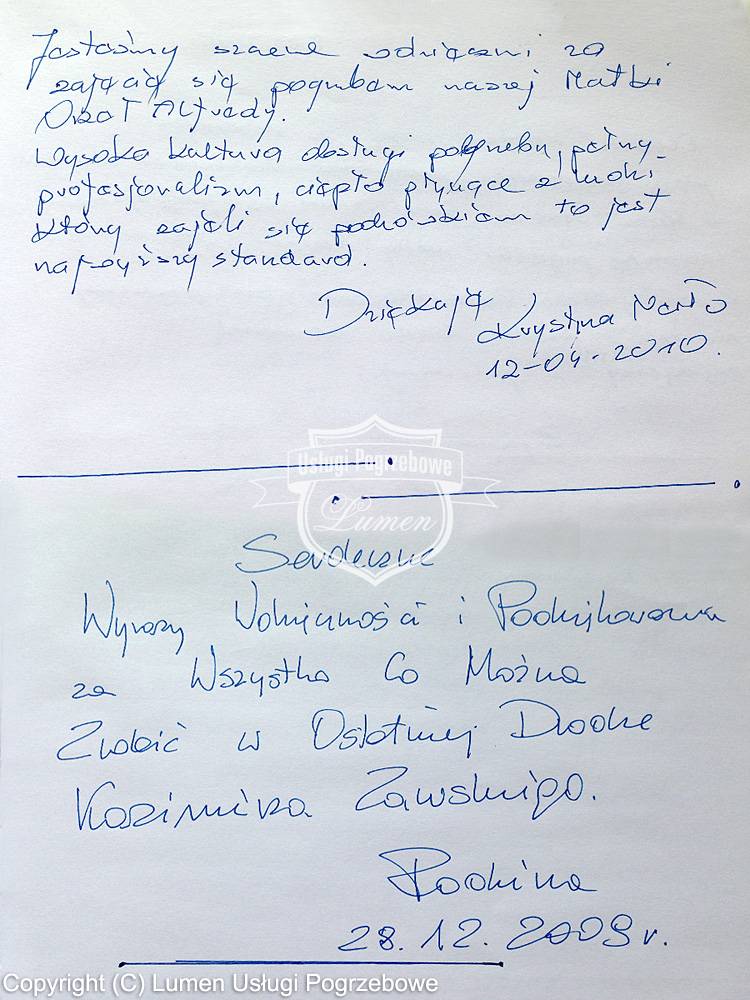 Jesteśmy szczerze wdzięczni za
zajęcie się pogrzebem naszej Matki
Wysoka kultura obsługi pogrzebu, pełny
profesjonalizm, ciepło płynące z ludzi
którzy zajęli się pochówkiem to jest
najwyższy standard.
Dziękuję
Krystyna
12-04-2010.
Usługi Pogrzebowe
Lumen
Serdeczne
Wyrazy Wdzięczności i Podziękowania
za Wszystko Co Można
Zrobić w Ostatniej Drodze
Kazimierza Zawskiego.
Rodzina
28.12.2009r.
Copyright (C) Lumen Usługi Pogrzebowe